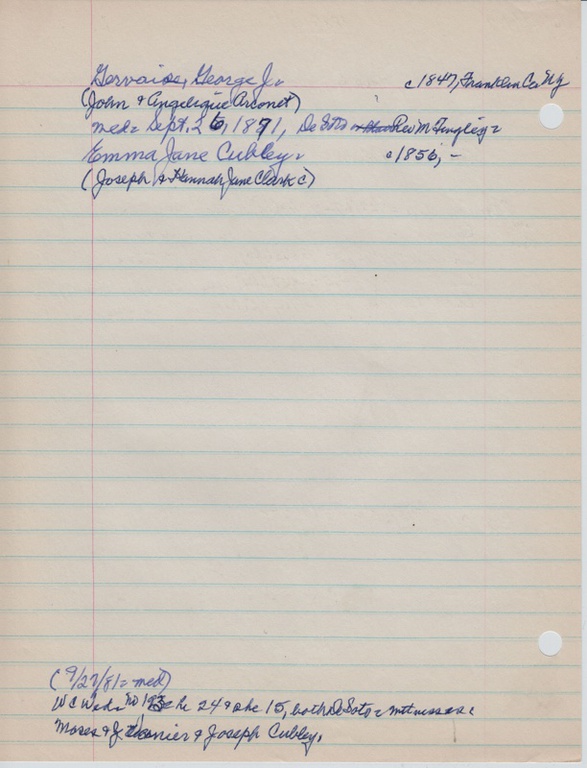 Gervaise, George J. c1847, Franklin Co NY
(John & Angelique Arconet)
med = Sept. 26, 1871, De Soto Rev M Tingley =
Emma Jane Cubley. c1856, -
(Joseph & Hannah Jane Clark C)
(9/27/81 = med)
WC Wed. No 193 he 24 & she 15, both De Soto = witnesses:
Moses & J. & Joseph Cubley.